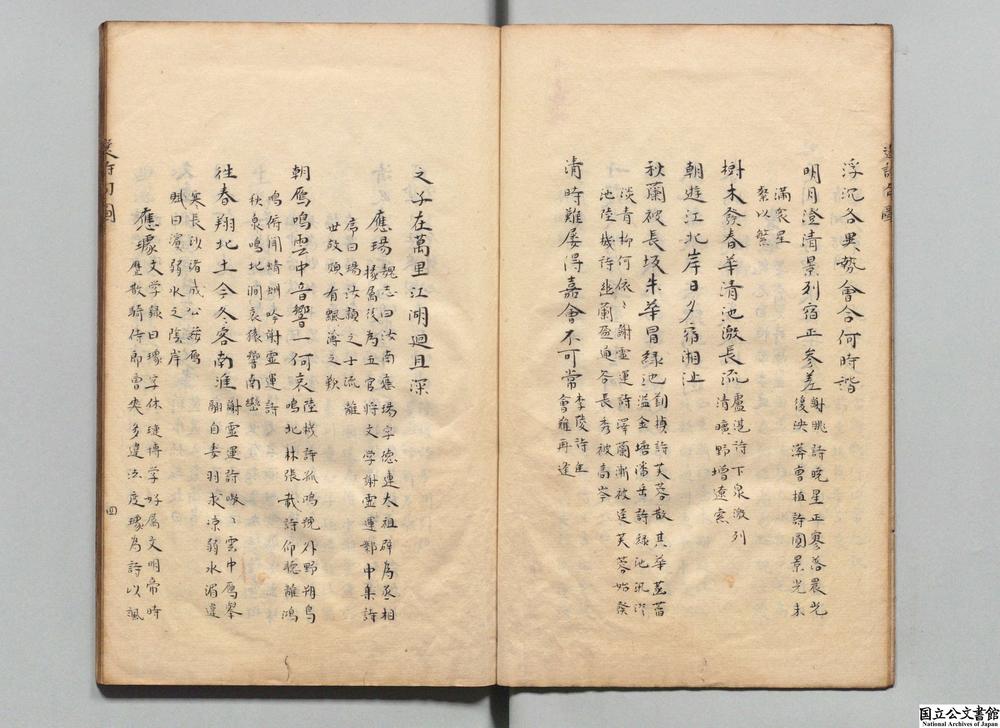 浮沉各異勢會合何時諧
明月澄清景列宿正參差 謝眺詩曉星正寥落晨光
復泱漭曹植詩圓景光未
滿衆星
粲以繁
樹木發春華清池激長流 盧諶詩下泉激列
清曠野增遼索
朝遊江北岸日夕宿湘沚
秋蘭被長坂朱華冒緑池 劉楨詩芙蓉散其華菡萏
溢金塘潘岳詩緑池汎淡
淡青柳何依〻謝靈運詩澤蘭漸被逕芙蓉始發
池陸機詩幽蘭盈通谷長秀被高岑
清時難屡得嘉會不可常 李陵詩
會難再逢
之子在萬里江湖迥且深
應瑒 魏志曰汝南應瑒字德連太祖辟爲丞相
掾屬後爲五官將文學謝靈運鄴中集詩
序曰瑒汝穎之士流離
世故頗有飄薄之歎
朝鴈鳴雲中音響一何哀 陸機詩孤鴻挽外野朔鳥
鳴北林張載詩仰聴離鴻
鳴俯聞蜻蛚吟謝靈運詩
秋泉鳴北澗哀猿響南巒
往春翔北土今冬客南淮 謝靈運詩嗷〻雲中鴈舉
翮自委羽求涼弱水湄違
寒長沙渚成公綏鴈
賦曰濱弱水之陰岸
應璩 文学録曰璩字休璉博学好属文明帝時
歷散騎侍郎曹爽多違法度璩為詩以諷
四
国立公文書館
National Archives of Japan